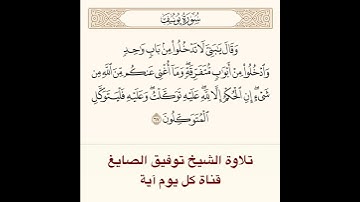 سُورَةُ يُوسُفَ
وَقَالَ يَٰبَنِىَّ لَا تَدْخُلُوا۟ مِنۢ بَابٍ وَٰحِدٍ
وَٱدْخُلُوا۟ مِنْ أَبْوَٰبٍ مُّتَفَرِّقَةٍ ۖ وَمَآ أُغْنِى عَنكُم مِّنَ ٱللَّهِ مِن
شَىْءٍ ۖ إِنِ ٱلْحُكْمُ إِلَّا لِلَّهِ ۖ عَلَيْهِ تَوَكَّلْتُ ۖ وَعَلَيْهِ فَلْيَتَوَكَّلِ
ٱلْمُتَوَكِّلُونَ
تلاوة الشيخ توفيق الصايغ
قناة كل يوم آية